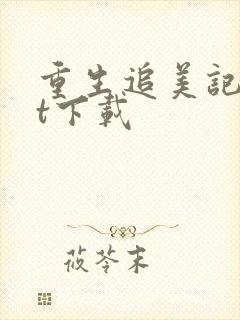 重生追美記
t下載
莜苓末